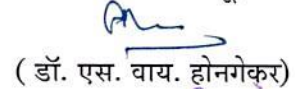 ( डॉ. एस. वाय. होनगेकर)